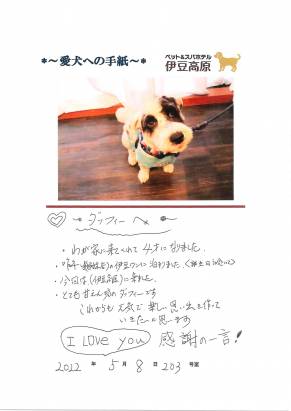 *～愛犬への手紙～*
ペット&スパホテル
伊豆高原
～ダッフィーへ～
・わが家に来てくれて 4才になりました。
・今回は(伊豆高原)に来れた。
・とても甘えん坊のダッフィーです
これからも 元気で 楽しい思い出を作って
いきたいと思います
I LOVE you 感謝の一言!
2022年 5月 8日 203号室